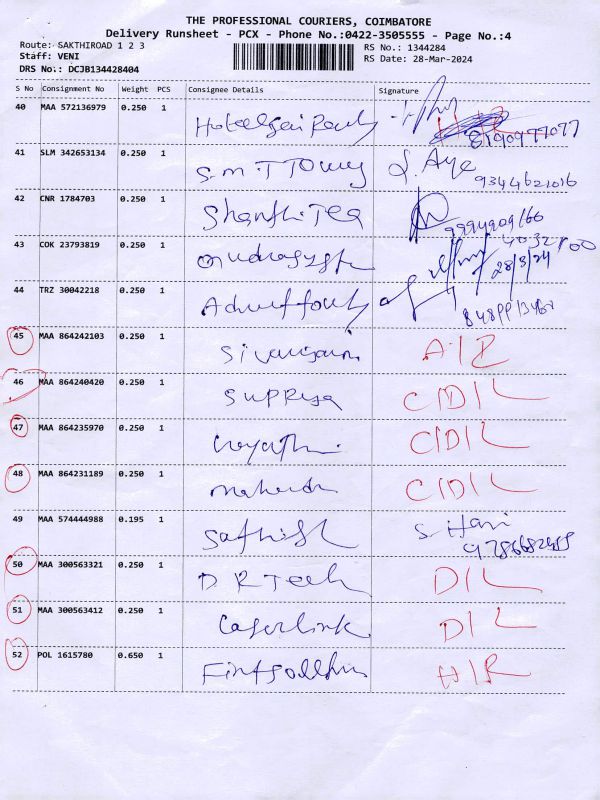 THE PROFESSIONAL COURIERS, COIMBATORE
Delivery Runsheet - PCX - Phone No.:0422-3505555 - Page No.:4
Route: SAKTHIROAD 1 2 3 RS No.: 1344284
Staff: VENI RS Date: 28-Mar-2024
DRS No.: DCJB134428404
S No Consignment No Weight PCS Consignee Details Signature
40 MAA 572136979 0.250 1
8190977077
41 SLM 342653134 0.250 1 S.M.T Towy
9344621016
42 CNR 1784703 0.250 1 Shanthi Tea
9994909166
43 COK 23793819 0.250 1
28/3/24
44 TRZ 30042218 0.250 1
45 MAA 864242103 0.250 1
46 MAA 864240420 0.250 1 Supriya C/D/L
47 MAA 864235970 0.250 1 C/D/L
48 MAA 864231189 0.250 1 C/D/L
49 MAA 574444988 0.195 1 Sathish S. Hari
50 MAA 300563321 0.250 1 D R Tech D/L
51 MAA 300563412 0.250 1 Laserlink D/L
52 POL 1615780 0.650 1 H/R